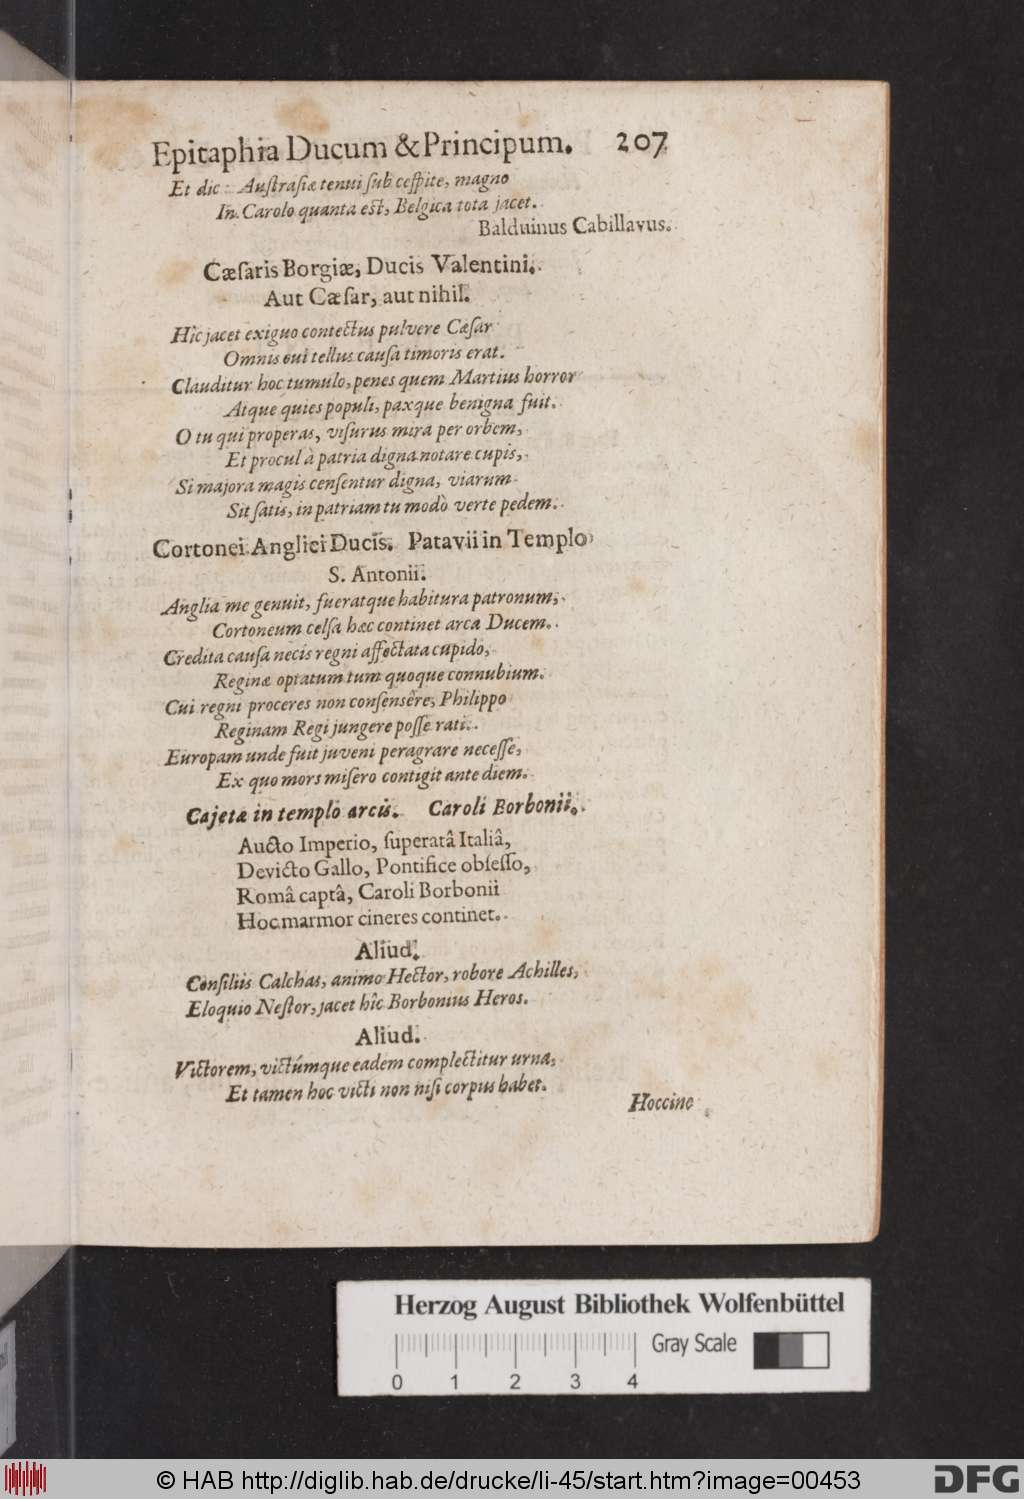 Epitaphia Ducum & Principum. 207
Et dic: Auſtraſiæ tenui ſub ceſpite, magno
In Carolo quanta eſt, Belgica tota jacet.
Balduinus Cabillavus.
Cæſaris Borgiæ, Ducis Valentini.
Aut Cæſar, aut nihil.
Hîc jacet exiguo contectus pulvere Cæſar
Omnis cui tellus cauſa timoris erat.
Clauditur hoc tumulo, penes quem Martius horror
Atque quies populi, paxque benigna fuit.
O tu qui properas, viſurus mira per orbem,
Et procul à patria digna notare cupis,
Si majora magis cenſentur digna, viarum
Sit ſatis, in patriam tu modò verte pedem.
Cortonei Anglici Ducis. Patavii in Templo
S. Antonii.
Anglia me genuit, fueratque habitura patronum,
Cortoneum celſa hæc continet arca Ducem.
Credita cauſa necis regni affectata cupido,
Reginæ optatum tum quoque connubium.
Cui regni proceres non conſensêre, Philippo
Reginam Regi jungere poſſe rati.
Europam unde fuit juveni peragrare neceſſe,
Ex quo mors miſero contigit ante diem.
Cajetæ in templo arcis. Caroli Borbonii.
Aucto Imperio, ſuperatâ Italiâ,
Devicto Gallo, Pontifice obſeſſo,
Româ captâ, Caroli Borbonii
Hoc marmor cineres continet.
Aliud.
Conſiliis Calchas, animo Hector, robore Achilles,
Eloquio Neſtor, jacet hîc Borbonius Heros.
Aliud.
Victorem, victúmque eadem complectitur urna,
Et tamen hoc victi non niſi corpus habet.
Hoccine
Herzog August Bibliothek Wolfenbüttel
Gray Scale
0 1 2 3 4
© HAB http://diglib.hab.de/drucke/li-45/start.htm?image=00453
DFG